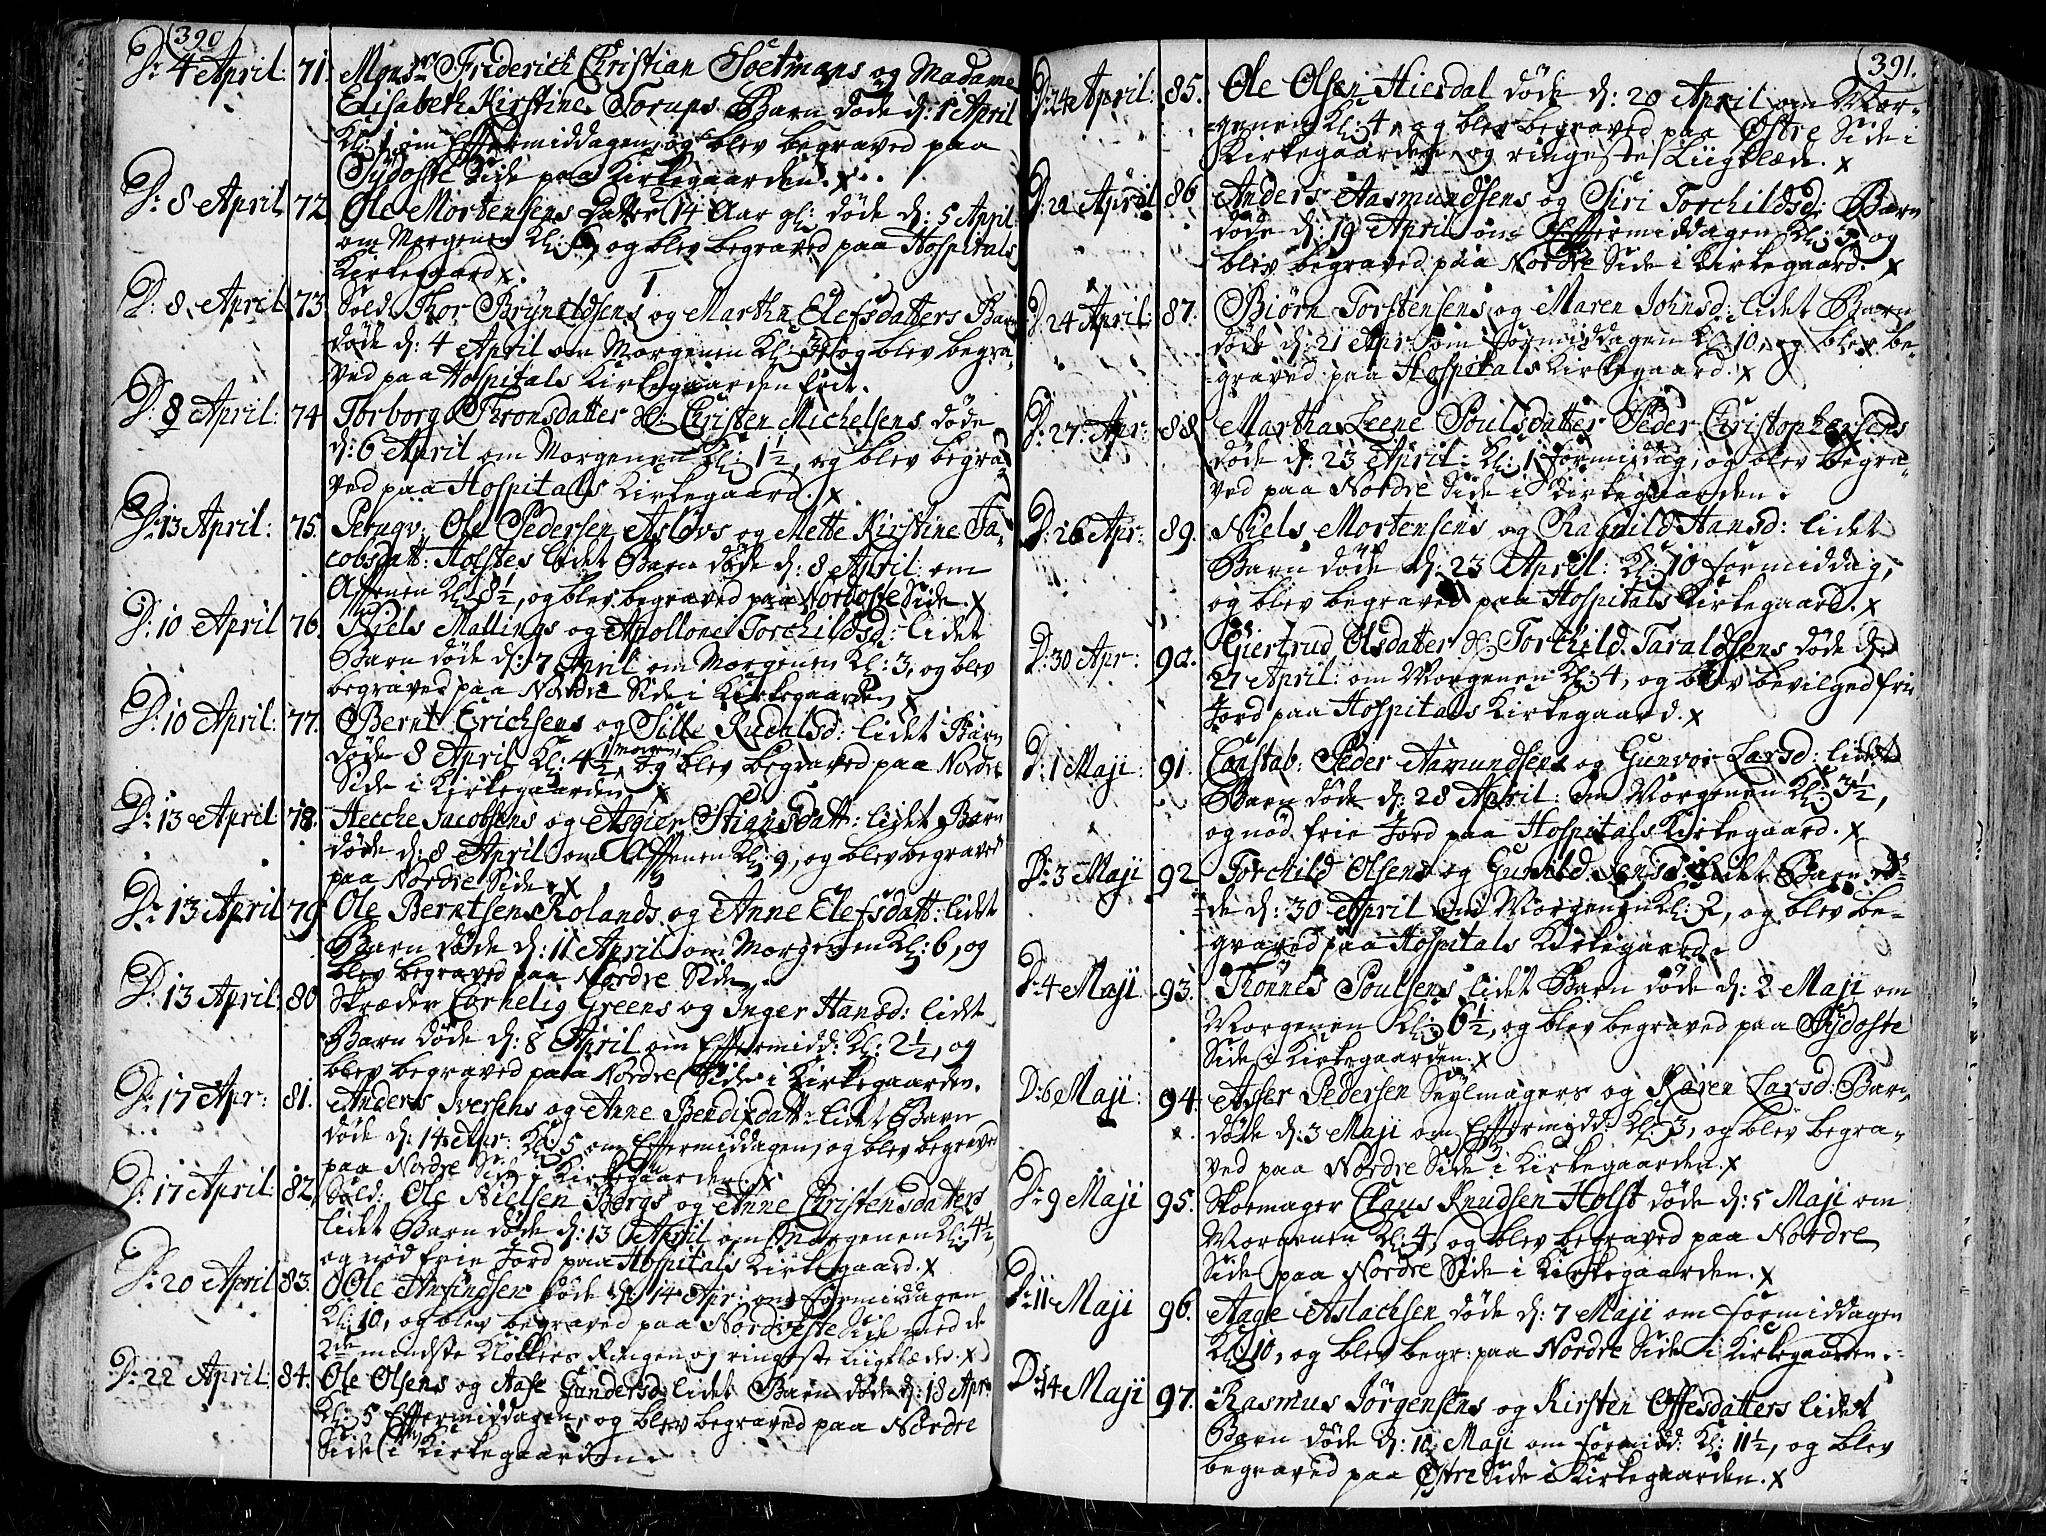 390
D: 4 April: 71. Monsr Friderich Christian Soetmans og Madame
Elisabeth Kirstine Torups Barn døde d: 1 April
Kl: 1 om Effermiddagen, og blev begraved paa
Sydoste Side paa Kirkegaarden. x
D: 8 April 72. Ole Mortensens Datter 14 Aar gl: døde d: 5 April
om Morgenen Kl: 6, og blev begraved paa Hospitals
Kirkegaard x.
D: 8. April 73. Sold: Thor Bryneldsens og Martha Elefsdatters Barn
døde d: 4 April om Morgenen Kl: 3, og blev begra-
ved paa Hospitals Kirkegaarden frit.
D: 8 April: 74 Torborg Thronsdatter Christen Michelsens døde
d: 6 April om Morgenen Kl: 1½, og blev begra-
ved paa Hospitals Kirkegaard. x
D: 13 April: 75. Ole Pedersen Aslovs og Mette Kirstine Ja-
cobsdatt: Holstes lidet Barn døde d: 8 April om
Afftenen Kl: 8½, og blev begraved paa Nordoste Side. x
D: 10 April 76. Niels Mallings og Apollone Torchildsd: lidet
Barn døde d: 7 April om Morgenen Kl: 3, og blev
begraved paa Nordre Side i Kirkegaarden x
D: 10 April: 77. Bernt Erichsens og Sille Rudalsd: lidet Barn
døde 8 April Kl: 4½ morgen, og blev begraved paa Nordre
Side i Kirkegaarden x
D: 13 April 78. Hecche Jacobsens og Asgier Stiansdatt: lidet Barn
døde d: 8 April om Afftenen Kl: 9, og blev begraved
paa Nordre Side. x
D: 13 April 79 Ole Berntsens Rolands og Anne Elefsdatt: lidet
Barn døde d: 11 April om Morgenen Kl: 6, og
blev begraved paa Nordre Side.
D: 13 April 80 Skræder Cornelig Greens og Inger Hansd: lidet
Barn døde d: 8 April om Effermidd: Kl: 2½, og
blev begraved paa Nordre Side i Kirkegaarden.
D: 17 Apr: 81. Anders Iversens og Anne Bendixdatt: lidet Barn
døde d: 14 Apr: Kl: 5 om Effermiddagen, og blev begraved
paa Nordre Side i Kirkegaarden. x
D: 17 April: 82. Sold: Ole Nielsen Bergs og Anne Christensdatters
lidet Barn døde d: 13 April om Morgenen Kl: 4½,
og nød frie Jord paa Hospitals Kirkegaard. x
D: 20 April 83. Ole Anfindsen døde d: 14 Apr: om Formiddagen
Kl: 10, og blev begraved paa Nordveste Side med de
2de mindste Klokkers Ringen og ringeste Liigklæde. x
D: 22 April: 84. Ole Olsens og Aase Gundersd: lidet Barn døde d: 18 Apr:
Kl: 5 Effermiddagen, og blev begraved paa Nordre
Side i Kirkegaarden.
391.
D: 24 April: 85. Ole Olsen Hierdal døde d: 20 April om Mor-
genen Kl: 4, og blev begraved paa Østre Side i
Kirkegaarden, og ringeste Liigklæde. x
D: 22 April 86 Anders Aasmundsens og Siri Torchildsd: Barn
døde d: 19 April om Effermiddagen Kl: 3, og
blev begraved paa Nordre Side i Kirkegaard. x
D: 24 April: 87. Biørn Torstensens og Maren Johnsd: lidet Barn
døde d: 21 Apr: om Formiddagen Kl: 10, og blev be-
graved paa Hospitals Kirkegaard. x
D: 27. Apr: 88 Martha Leene Poulsdatter Peder Christophersens
døde d: 23 April: Kl: 1 Formiddag, og blev begra-
ved paa Nordre Side i Kirkegaarden.
D: 26 Apr: 89. Niels Mortensens og Ragnild Hansd: lidet
Barn døde d: 23 April: Kl: 10 Formiddag,
og blev begraved paa Hospitals Kirkegaard. x
D: 30 Apr: 90. Giertrud Olsdatter Torchild Taraldsens døde d:
27 April: om Morgenen Kl: 4, og blev bevilged fri
Jord paa Hospitals Kirkegaard. x
D: 1 Maji: 91. Constab: Peder Aamundsens og Gunvor Larsd: lidet
Barn døde d: 28 April: om Morgenen Kl: 3½,
og nød frie Jord paa Hospitals Kirkegaard. x
D: 3 Maji 92 Torchild Olsens og Gunild Jensd: lidet Barn dø-
de d: 30 April om Morgenen Kl: 2, og blev be-
graved paa Hospitals Kirkegaard.
D: 4 Maji 93. Rønnes Poulsens lidet Barn døde d: 2 Maji om
Morgenen Kl: 6½, og blev begraved paa Sydoste
Side i Kirkegaarden. x
D: 6 Maji: 94. Asser Pedersen Seylmagers og Karen Larsd: Barn
døde d: 3 Maji om Effermidd: Kl: 3, og blev begra-
ved paa Nordre Side i Kirkegaarden. x
D: 9 Maji 95. Skoemager Claus Knudsen Holst døde d: 5 Maji om
Morgenen Kl: 4, og blev begraved paa Nordre
Side paa Nordre Side i Kirkegaarden. x
D: 11 Maji 96. Aage Aslachsen døde d: 7 Maji om Formiddagen
Kl: 10, og blev begr: paa Nordre Side i Kirkegaarden.
D: 14 Maji 97. Rasmus Jørgensens og Kirsten Offesdatters lidet
Barn døde d: 10 Maji om Formidd: Kl: 11½, og blev
begraved paa Østre Side i Kirkegaarden. x